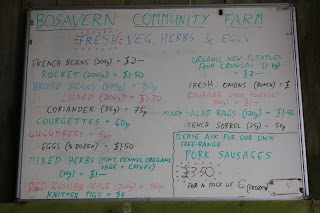 BOSAVERN COMMUNITY FARM
FRESH VEG, HERBS & EGGS
FRENCH BEANS (200g) = £2-
ROCKET (200g) = £1.50
BROAD BEANS
CHARD (200g) = £1.30
CORIANDER (35g) = 75p
COURGETTES = 60p
CUCUMBERS = 50p
EGGS (½ DOZEN) = £1.50
MIXED HERBS (MINT, FENNEL, OREGANO,
SAGE + CHIVES)
= £1-
RED RUSSIAN KALE
KNITTED PIGS = £5
ORGANIC NEW POTATOES
FROM CROWLAS (1 kg)
= £2-
FRESH ONIONS (BUNCH) = £
MIXED SALAD BAGS (120g) = £1.50
FRENCH SORREL (75g) = 50p
PLEASE ASK FOR OUR OWN
FREE-RANGE
PORK SAUSAGES
£3.50
FOR A PACK OF 6 (FROZEN)